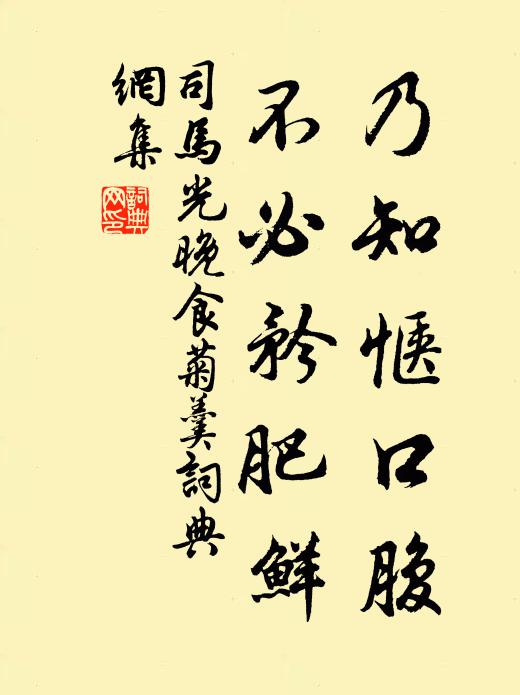 乃知愜口腹
不必矜肥鮮
司馬光晚食菊羹詞典
網集
詞典網印